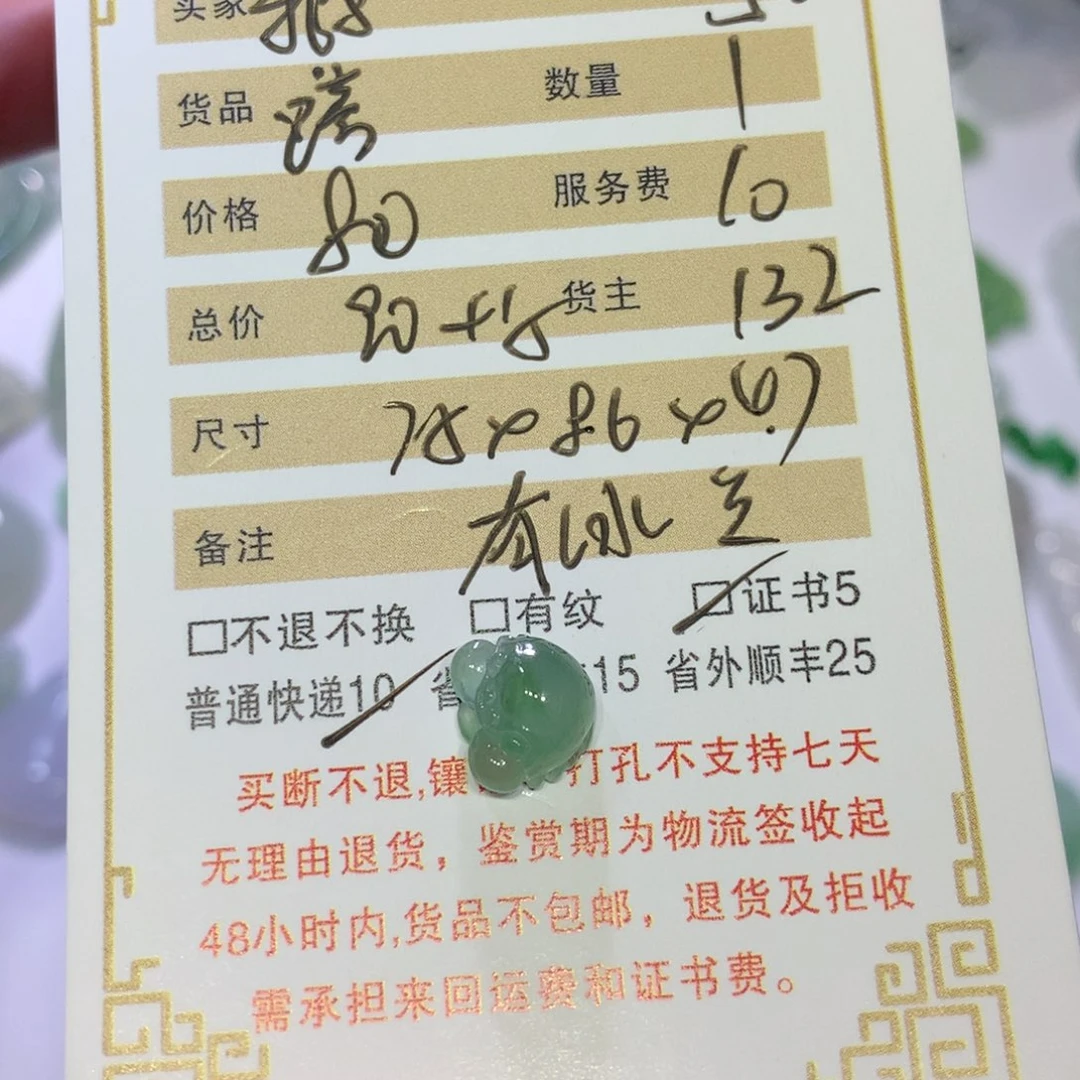 买家
货品 数量 1
价格 80 服务费 10
总价 80+15 货主 132
尺寸 7.8×8.6×6.7
备注 有冰
□不退不换 □有纹 □证书5
普通快递10 省 15 省外顺丰25
买断不退,镶 打孔不支持七天
无理由退货，鉴赏期为物流签收起
48小时内,货品不包邮，退货及拒收
需承担来回运费和证书费。